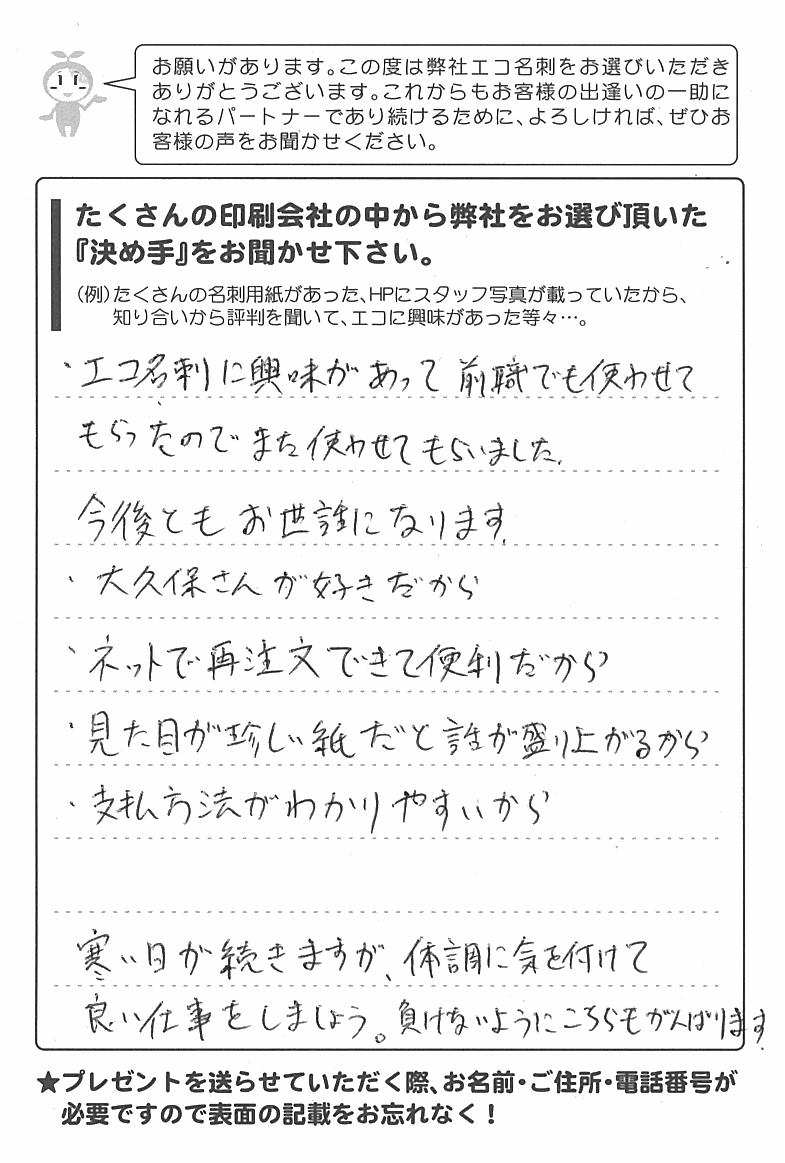 お願いがあります。この度は弊社エコ名刺をお選びいただき
ありがとうございます。これからもお客様の出逢いの一助に
なれるパートナーであり続けるために、よろしければ、ぜひお
客様の声をお聞かせください。
たくさんの印刷会社の中から弊社をお選び頂いた
『決め手』をお聞かせ下さい。
(例)たくさんの名刺用紙があった、HPにスタッフ写真が載っていたから、
知り合いから評判を聞いて、エコに興味があった等々…。
・エコ名刺に興味があって前職でも使わせて
もらったのでまた使わせてもらいました。
今後ともお世話になります。
・大久保さんが好きだから
・ネットで再注文できて便利だから
・見た目が珍しい紙だと話が盛り上がるから
・支払方法がわかりやすいから
寒い日が続きますが、体調に気を付けて
良い仕事をしましょう。負けないようにこちらもがんばります
★プレゼントを送らせていただく際、お名前・ご住所・電話番号が
必要ですので表面の記載をお忘れなく！